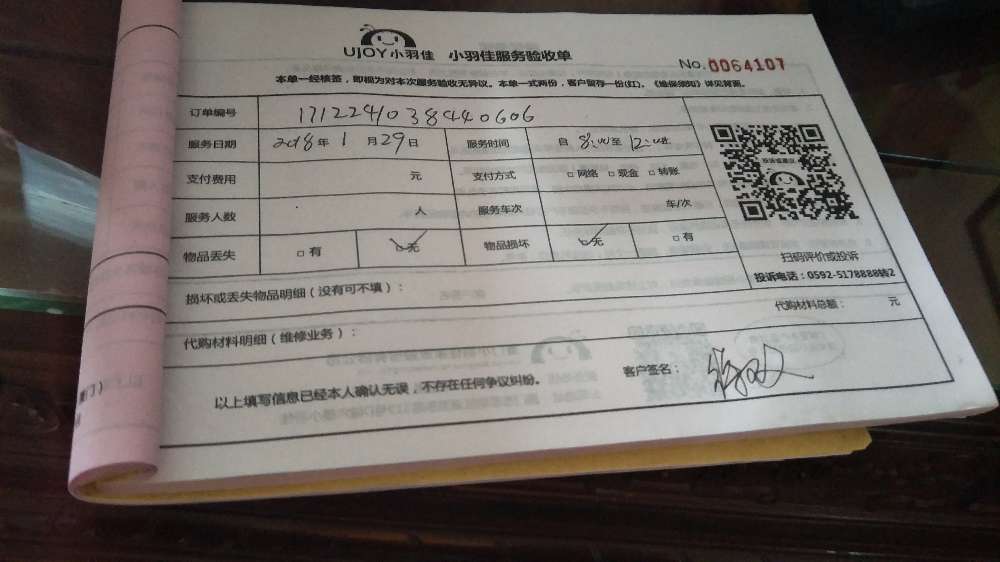 UJOY小羽佳 小羽佳服务验收单
No.0064107
本单一经核签，即视为对本次服务验收无异议。本单一式两份，客户留存一份(红)，《维保须知》详见背面。
订单编号 1712241038440606
服务日期 2018年1月29日 服务时间 自8:00至12:00
支付费用 元 支付方式 □网络 □现金 □转账
服务人数 人 服务车次 车/次
物品丢失 □有 □无 物品损坏 □无 □有
投诉或建议
扫码评价或投诉
投诉电话：0592-5178888转2
损坏或丢失物品明细（没有可不填）：
代购材料明细（维修业务）： 代购材料总额： 元
以上填写信息已经本人确认无误，不存在任何争议纠纷。 客户签名：